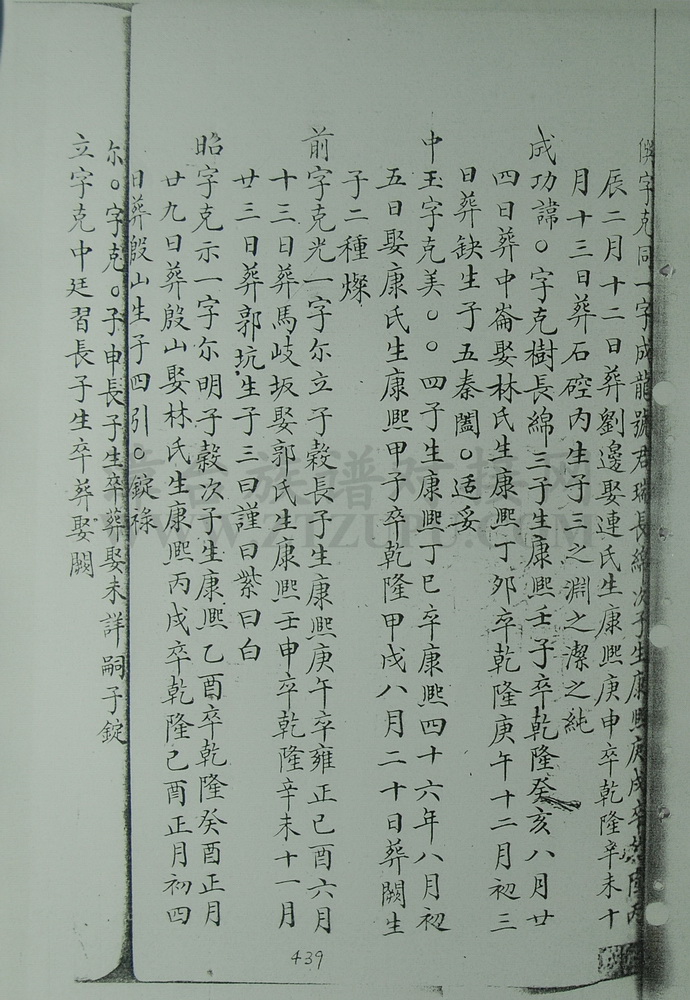 字克同一字成龍號君瑞長綿次子生康熙庚戌卒乾隆丙
辰二月十二日葬劉邊娶連氏生康熙庚申卒乾隆辛未十
月十三日葬石硿内生子三之淵之潔之純
成功諱○字克樹長綿三子生康熙壬子卒乾隆癸亥八月廿
四日葬中崙娶林氏生康熙丁卯卒乾隆庚午十二月初三
日葬缺生子五秦闔○适妥
中玉字克美○○四子生康熙丁巳卒康熙四十六年八月初
五日娶康氏生康熙甲子卒乾隆甲戌八月二十日葬闕生
子二種燦
前字克光一字尔立子穀長子生康熙庚午卒雍正己酉六月
十三日葬馬岐坂娶郭氏生康熙壬申卒乾隆辛未十一月
廿三日葬郭坑生子三曰謹曰紫曰白
昭字克示一字尔明子穀次子生康熙乙酉卒乾隆癸酉正月
廿九日葬殷山娶林氏生康熙丙戌卒乾隆己酉正月初四
日葬殷山生子四引○錠祿
尔○字克○子申長子生卒葬娶未詳嗣子錠
立字克中廷習長子生卒葬娶闕
439
WWW.ZTZUPU.COM